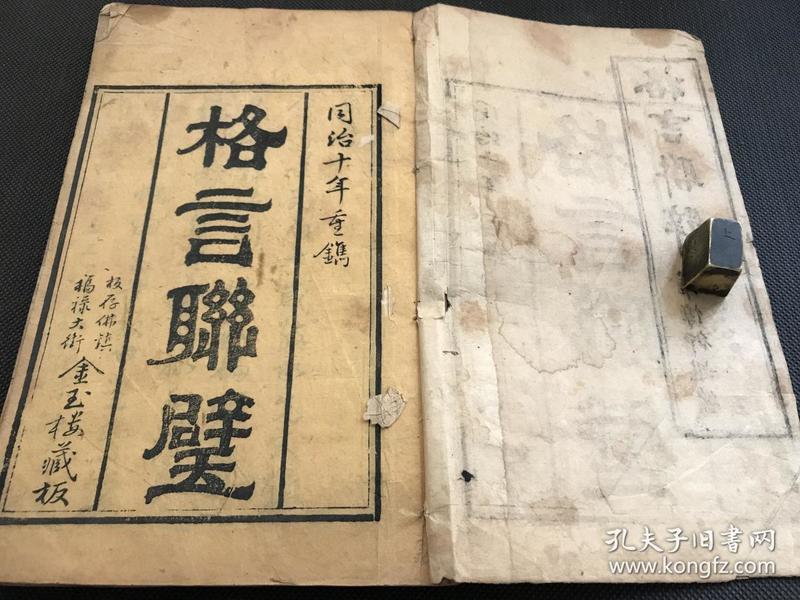 同治十年重鐫
格言聯璧
板存佛鎮
福祿大街
金玉楼藏板
上
孔夫子旧书网
www.kongfz.com